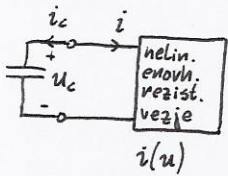 i_c
i
+
u_c
-
nelin.
enovh.
rezist.
vezje
i(u)